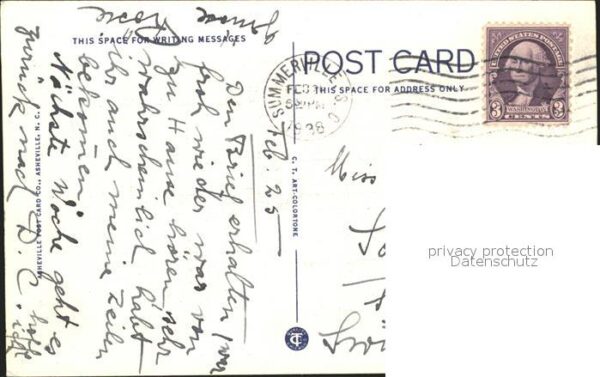 THIS SPACE FOR WRITING MESSAGES
POST CARD
THIS SPACE FOR ADDRESS ONLY
SUMMERVILLE S.C.
FEB
1938
UNITED STATES POSTAGE
WASHINGTON
3 CENTS 3
Feb. 25
Den Brief erhalten, war
froh wieder was von
zu Hause hören, ihr
wahrscheinlich habt
ihr auch meine Zeilen
bekommen.
Nächste Woche geht es
zurück nach D.C.
Miss
ASHEVILLE POST CARD CO., ASHEVILLE, N. C.
C. T. ART-COLORTONE
privacy protection
Datenschutz